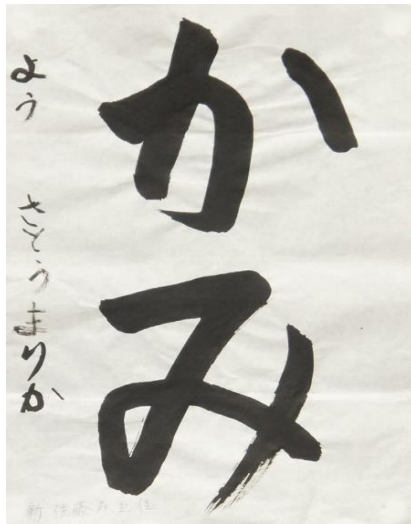 かみ
よう さとうまりか